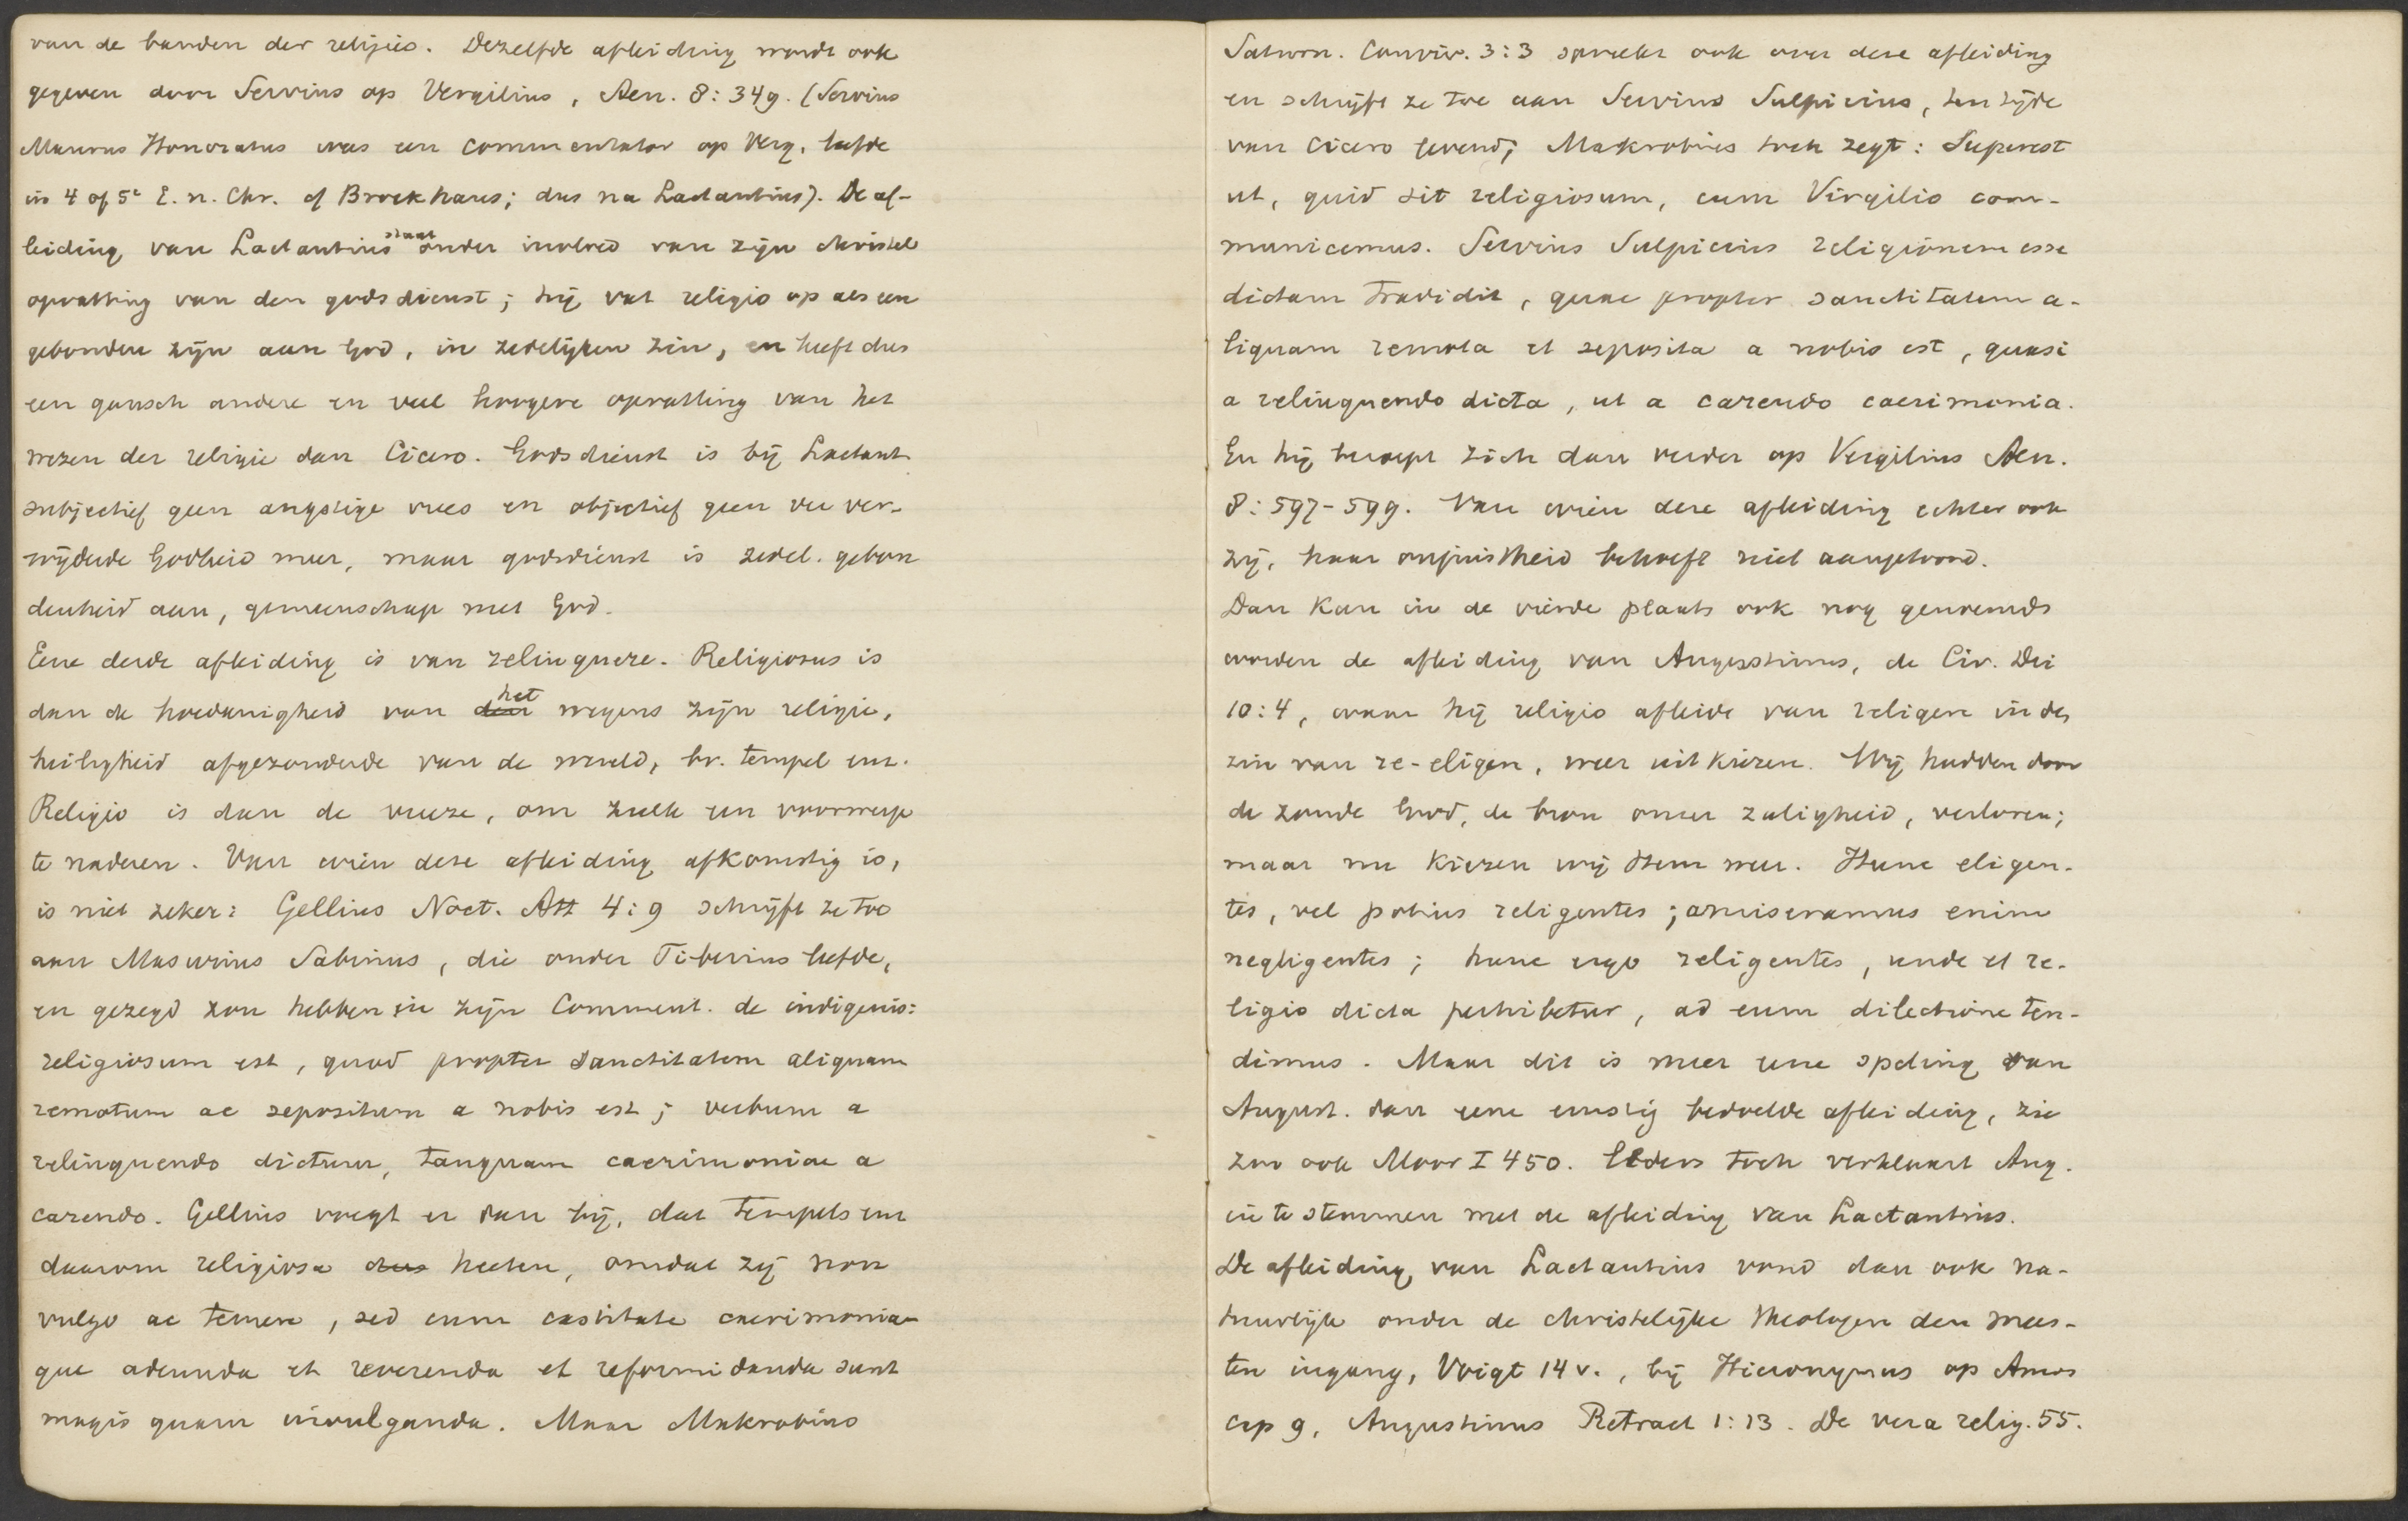 van de banden der religio. Dezelfde afleiding wordt ook
gegeven door Servius op Vergilius, Aen. 8:349. (Servius
Maurus Honoratus was een commentator op Verg. leefde
in 4 of 5e E. n. Chr. cf Brockhaus; dus na Lactantius). De af-
leiding van Lactantius staat onder invloed van zijn christel
opvatting van den godsdienst; hij vat religio op als een
gebonden zijn aan God, in zedelijken zin, en heeft dus
een gansch andere en veel hoogere opvatting van het
wezen der religie dan Cicero. Godsdienst is bij Lactant.
subjectief geen angstige vrees en objectief geen ver ver-
wijderde Godheid meer, maar godsdienst is zedel. gebon
denheid aan, gemeenschap met God.
Eene derde afleiding is van relinquere. Religiosus is
dan de hoedanigheid van den het wegens zijn religie,
heiligheid afgezonderde van de wereld, bv. tempel enz.
Religio is dan de vreeze, om zulk een voorwerp
te naderen. Van wien deze afleiding afkomstig is,
is niet zeker: Gellius Noct. Att 4:9 schrijft ze toe
aan Masurius Sabinus, die onder Tiberius leefde,
en gezegd zou hebben in zijn Comment. de indigenis:
religiosum est, quod propter sanctitatem aliquam
remotum ac sepositum a nobis est; verbum a
relinquendo dictum, tanquam caerimoniae a
carendo. Gellius voegt er dan bij, dat tempels enz
daarom religiosa dus heeten, omdat zij non
vulgo ac temere, sed cum castitate caerimonia-
que adeunda et reverenda et reformidanda sunt
magis quam invulganda. Maar Makrobius
Saturn. Conviv. 3:3 spreekt ook over deze afleiding
en schrijft ze toe aan Servius Sulpicius, ten tijde
van Cicero levend; Makrobius toch zegt: Superest
ut, quid sit religiosum, cum Virgilio com-
municemus. Servius Sulpicius religionem esse
dictam tradidit, quae propter sanctitatem a-
liquam remota et seposita a nobis est, quasi
a relinquendo dicta, ut a carendo caerimonia.
En hij beroept zich dan verder op Vergilius Aen.
8:597-599. Van wien deze afleiding echter ook
zij, haar onjuistheid behoeft niet aangetoond.
Dan kan in de vierde plaats ook nog genoemd
worden de afleiding van Augustinus, de Civ. Dei
10:4, waar hij religio afleidt van religere in den
zin van re-eligere, weer uit kiezen. Wij hadden door
de zonde God, de bron onzer zaligheid, verloren;
maar nu kiezen wij Hem weer. Hunc eligen-
tes, vel potius religentes; amiseramus enim
negligentes; hunc ergo religentes, unde et re-
ligio dicta perhibetur, ad eum dilectione ten-
dimus. Maar dit is meer eene speling van
August. dan eene ernstig bedoelde afleiding, zie
zoo ook Moor I 450. Elders toch verklaart Aug.
in te stemmen met de afleiding van Lactantius.
De afleiding van Lactantius vond dan ook na-
tuurlijk onder de christelijke theologen den mees-
ten ingang, Voigt 14 v., bij Hieronymus op Amos
cap 9, Augustinus Retract 1:13. De vera relig. 55.